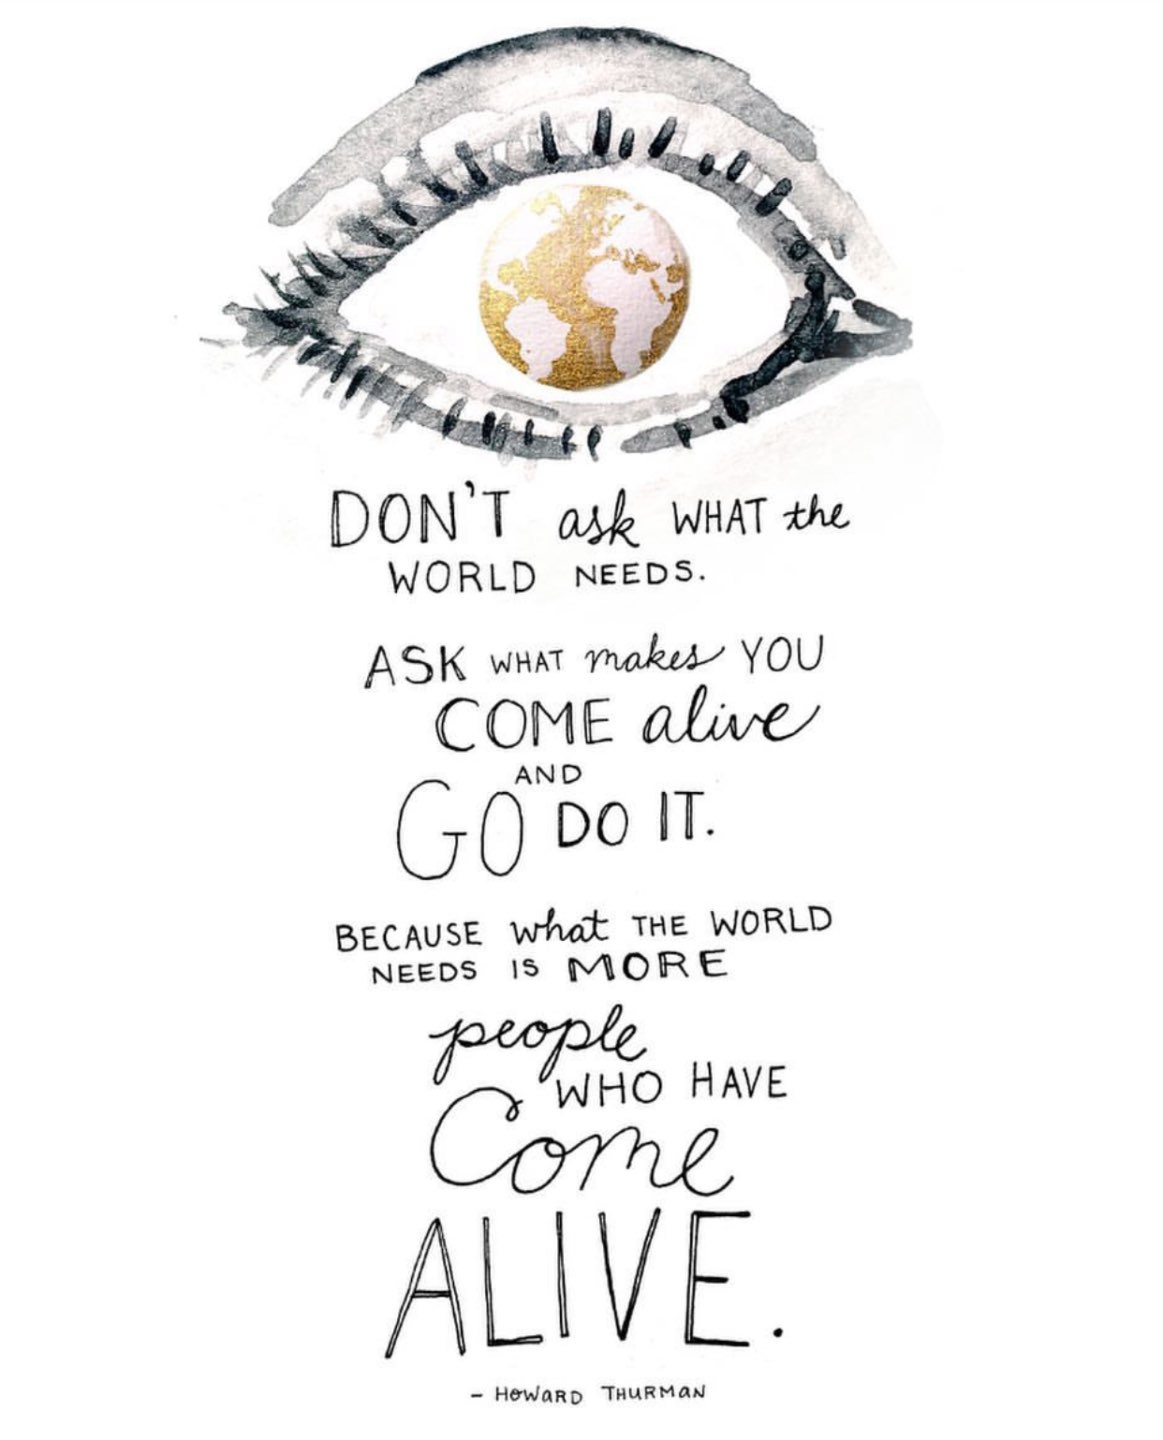 DON'T ask WHAT the
WORLD NEEDS.
ASK WHAT makes YOU
COME alive
AND
GO DO IT.
BECAUSE what THE WORLD
NEEDS IS MORE
people
WHO HAVE
Come
ALIVE.
- HOWARD THURMAN